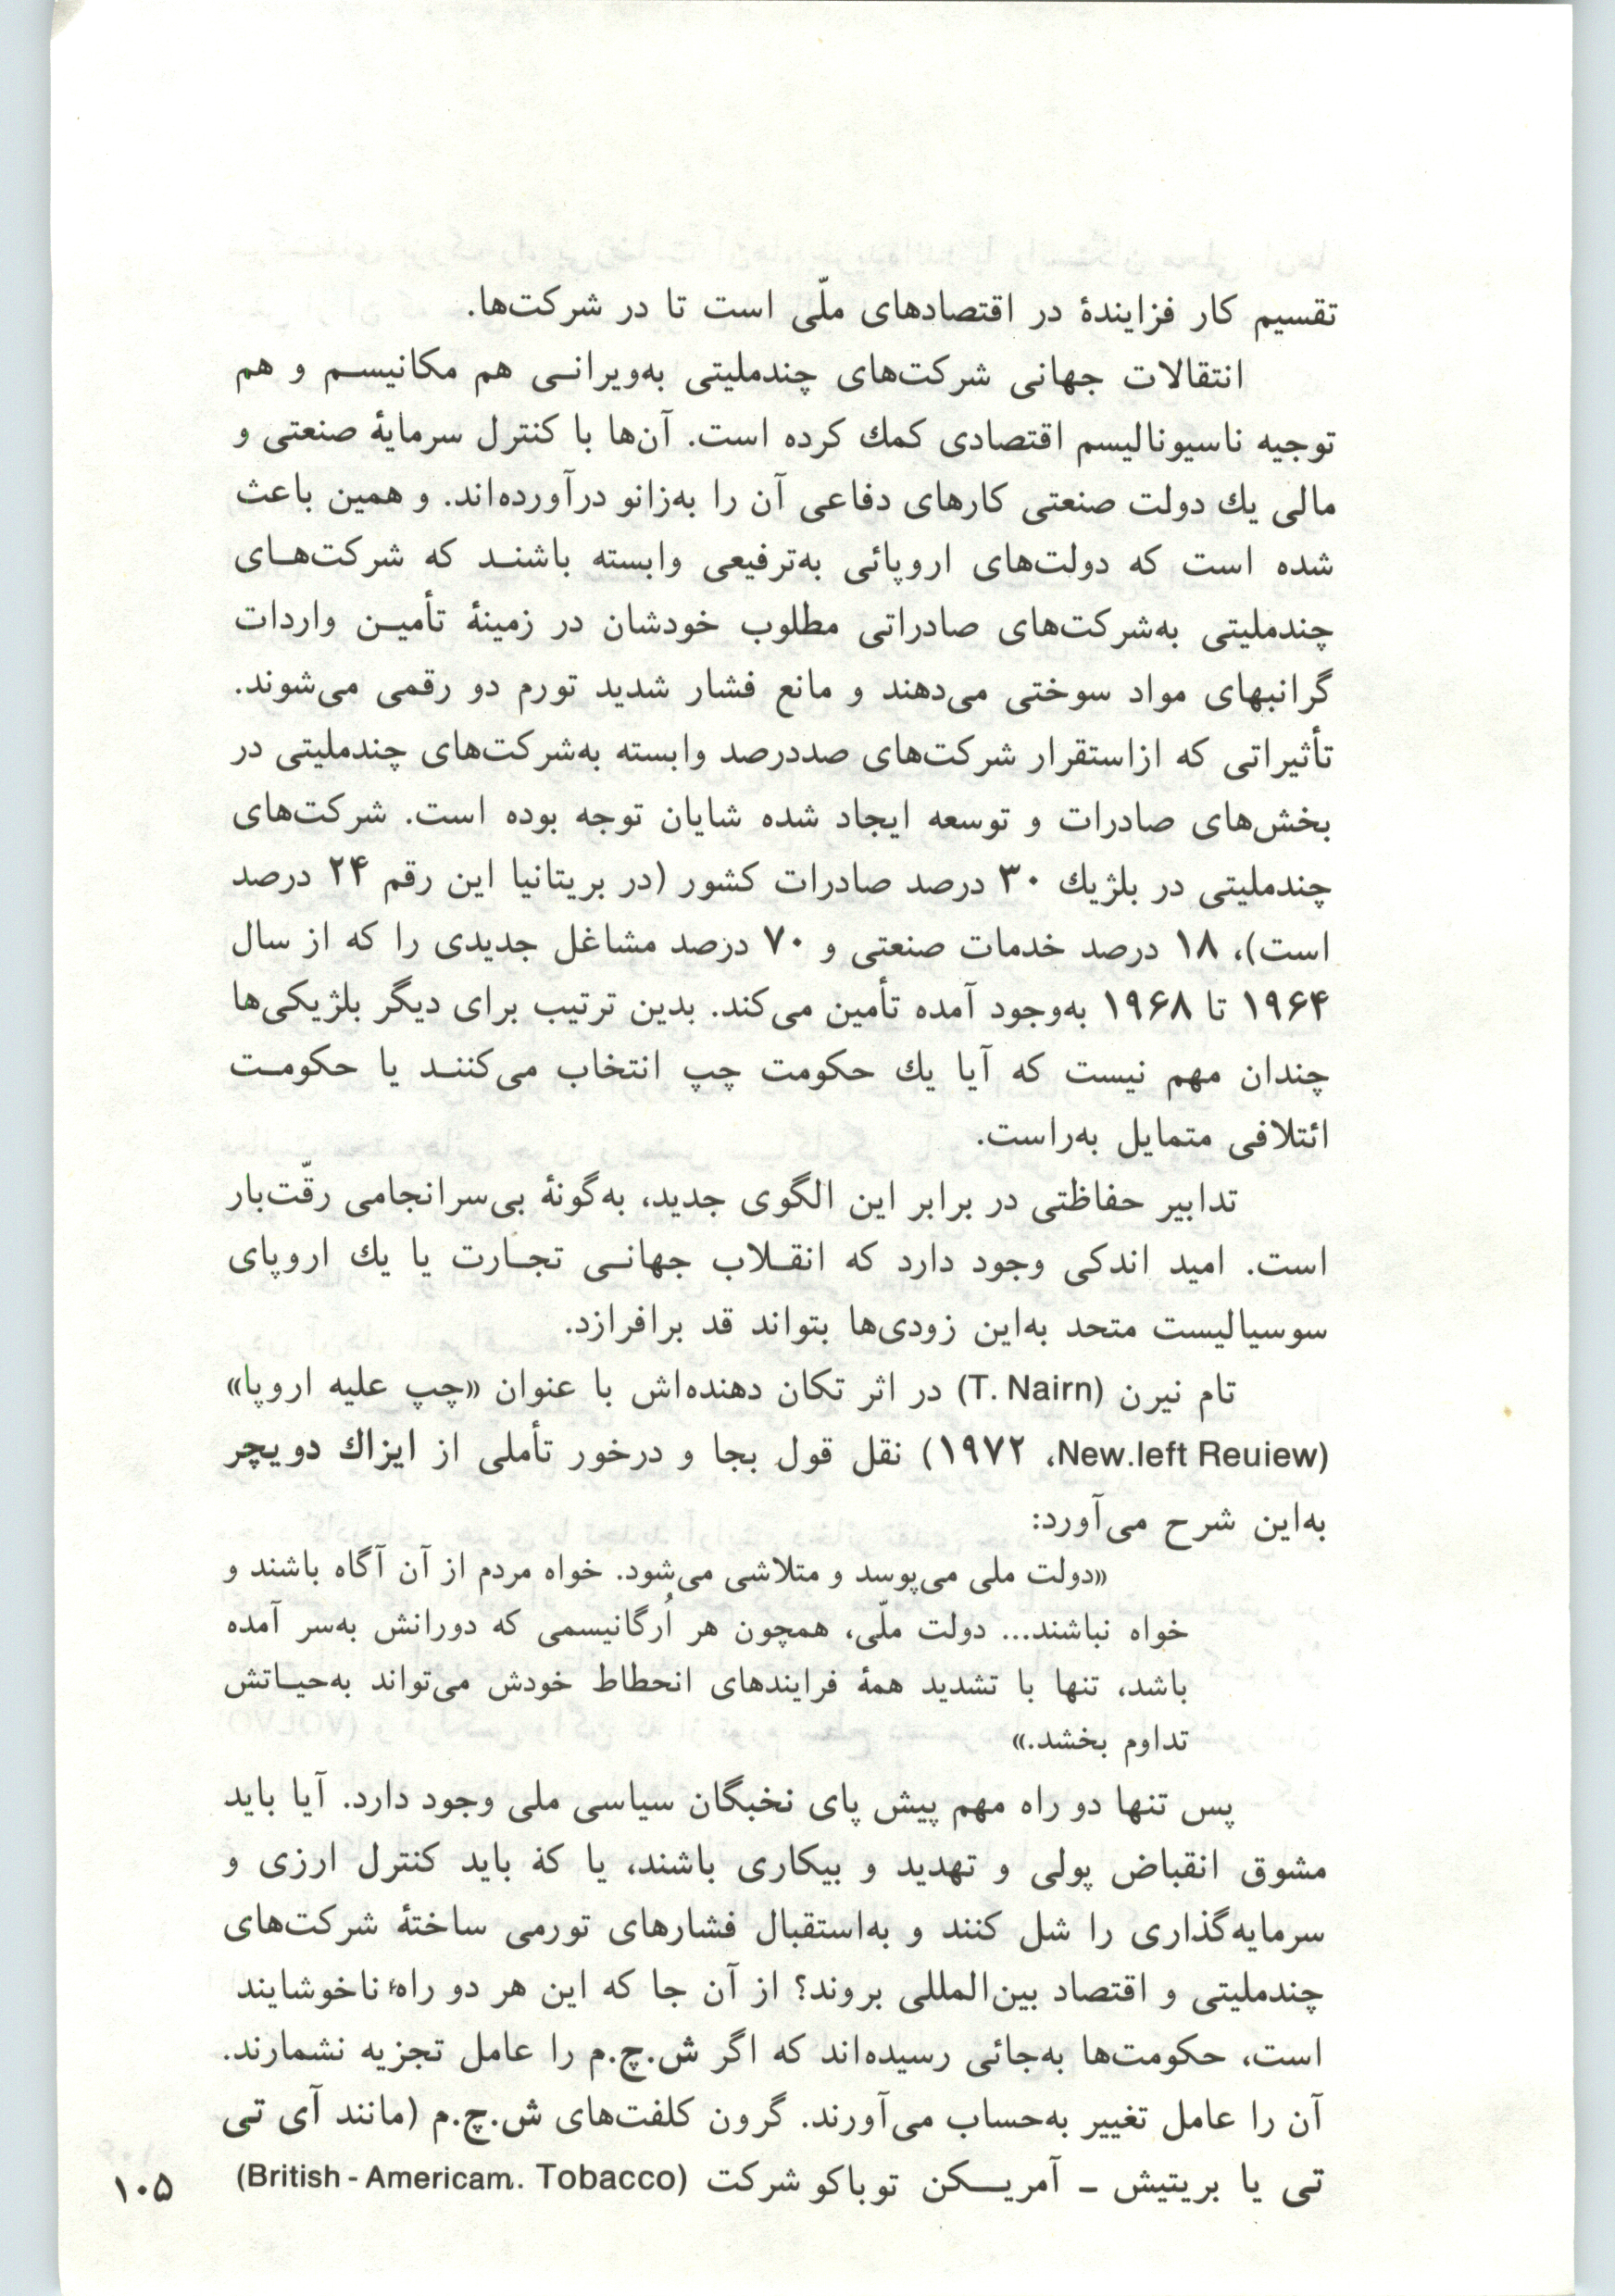 تقسیم کار فزایندهٔ در اقتصادهای ملّی است تا در شرکت‌ها.
انتقالات جهانی شرکت‌های چندملیتی به‌ویرانی هم مکانیسم و هم
توجیه ناسیونالیسم اقتصادی کمك کرده است. آن‌ها با کنترل سرمایهٔ صنعتی و
مالی یك دولت صنعتی کارهای دفاعی آن را به‌زانو درآورده‌اند. و همین باعث
شده است که دولت‌های اروپائی به‌ترفیعی وابسته باشند که شرکت‌های
چندملیتی به‌شرکت‌های صادراتی مطلوب خودشان در زمینهٔ تأمین واردات
گرانبهای مواد سوختی می‌دهند و مانع فشار شدید تورم دو رقمی می‌شوند.
تأثیراتی که ازاستقرار شرکت‌های صددرصد وابسته به‌شرکت‌های چندملیتی در
بخش‌های صادرات و توسعه ایجاد شده شایان توجه بوده است. شرکت‌های
چندملیتی در بلژیك ۳۰ درصد صادرات کشور (در بریتانیا این رقم ۲۴ درصد
است)، ۱۸ درصد خدمات صنعتی و ۷۰ درصد مشاغل جدیدی را که از سال
۱۹۶۴ تا ۱۹۶۸ به‌وجود آمده تأمین می‌کند. بدین ترتیب برای دیگر بلژیکی‌ها
چندان مهم نیست که آیا یك حکومت چپ انتخاب می‌کنند یا حکومت
ائتلافی متمایل به‌راست.
تدابیر حفاظتی در برابر این الگوی جدید، به‌گونهٔ بی‌سرانجامی رقّت‌بار
است. امید اندکی وجود دارد که انقلاب جهانی تجارت یا یك اروپای
سوسیالیست متحد به‌این زودی‌ها بتواند قد برافرازد.
تام نیرن (T. Nairn) در اثر تکان دهنده‌اش با عنوان «چپ علیه اروپا»
(New.left Reuiew، ۱۹۷۲) نقل قول بجا و درخور تأملی از ایزاك دویچر
به‌این شرح می‌آورد:
«دولت ملی می‌پوسد و متلاشی می‌شود. خواه مردم از آن آگاه باشند و
خواه نباشند... دولت ملّی، همچون هر اُرگانیسمی که دورانش به‌سر آمده
باشد، تنها با تشدید همهٔ فرایندهای انحطاط خودش می‌تواند به‌حیاتش
تداوم بخشد.»
پس تنها دو راه مهم پیش پای نخبگان سیاسی ملی وجود دارد. آیا باید
مشوق انقباض پولی و تهدید و بیکاری باشند، یا که باید کنترل ارزی و
سرمایه‌گذاری را شل کنند و به‌استقبال فشارهای تورمی ساختهٔ شرکت‌های
چندملیتی و اقتصاد بین‌المللی بروند؟ از آن جا که این هر دو راه ناخوشایند
است، حکومت‌ها به‌جائی رسیده‌اند که اگر ش.چ.م را عامل تجزیه نشمارند.
آن را عامل تغییر به‌حساب می‌آورند. گرون کلفت‌های ش.چ.م (مانند آی تی
تی یا بریتیش ـ آمریکن توباکو شرکت (British - Americam. Tobacco)
۱۰۵